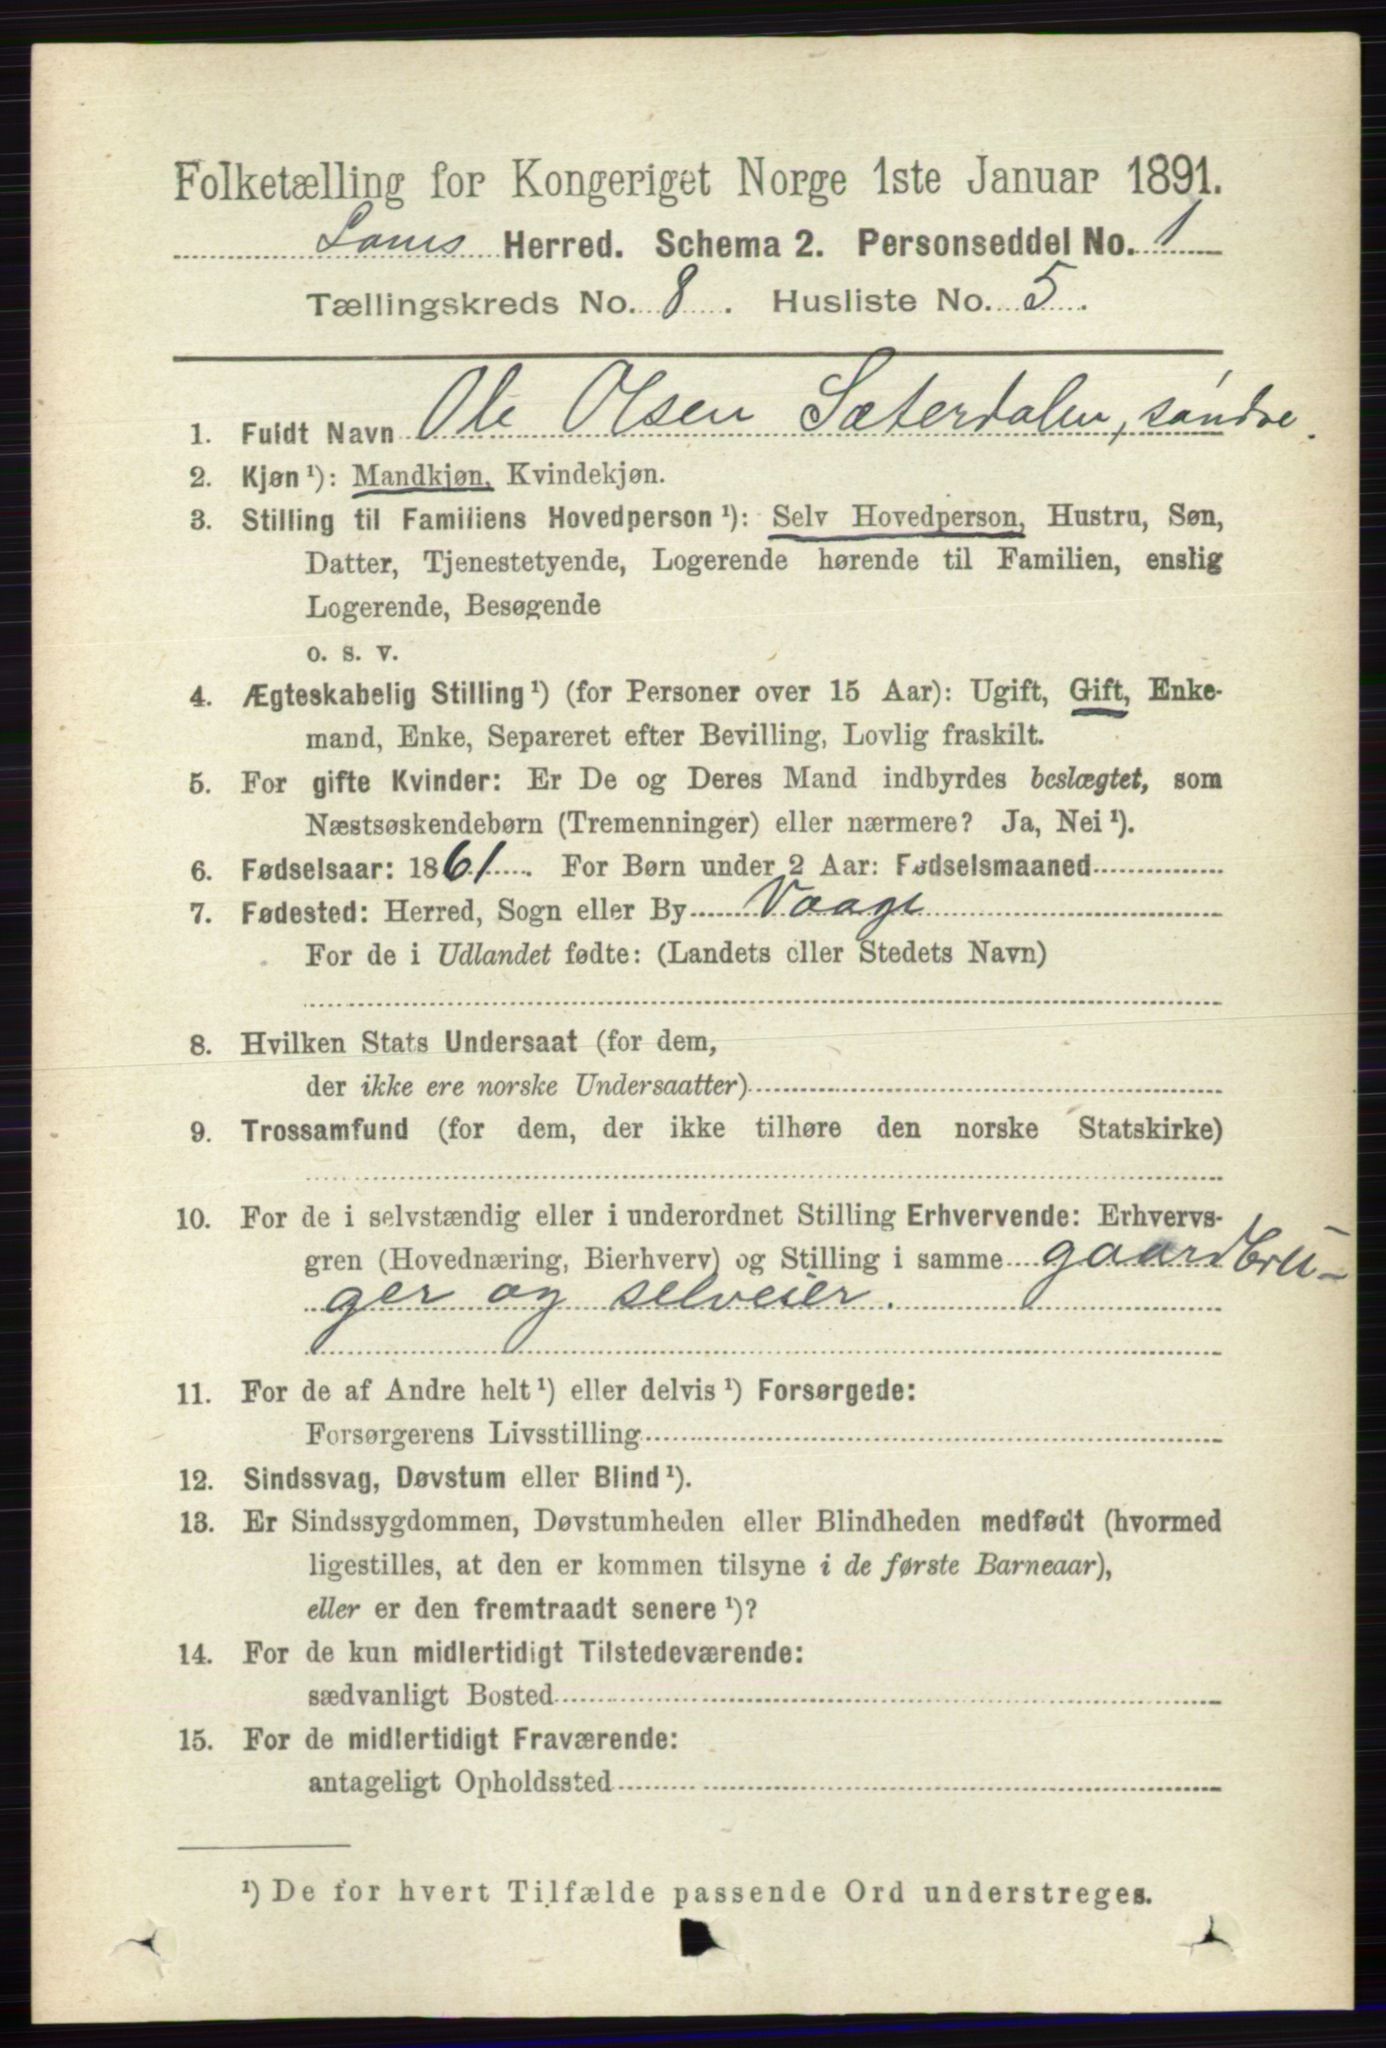 Folketælling for Kongeriget Norge 1ste Januar 1891.
Loms Herred. Schema 2. Personseddel No. 1
Tællingskreds No. 8. Husliste No. 5.
1. Fuldt Navn Ole Olsen Sæterdalen, søndre.
2. Kjøn ¹): Mandkjøn, Kvindekjøn.
3. Stilling til Familiens Hovedperson ¹): Selv Hovedperson, Hustru, Søn,
Datter, Tjenestetyende, Logerende hørende til Familien, enslig
Logerende, Besøgende
o. s. v.
4. Ægteskabelig Stilling ¹) (for Personer over 15 Aar): Ugift, Gift, Enke-
mand, Enke, Separeret efter Bevilling, Lovlig fraskilt.
5. For gifte Kvinder: Er De og Deres Mand indbyrdes beslægtet, som
Næstsøskendebørn (Tremenninger) eller nærmere? Ja, Nei ¹).
6. Fødselsaar: 1861. For Børn under 2 Aar: Fødselsmaaned
7. Fødested: Herred, Sogn eller By Vaage
For de i Udlandet fødte: (Landets eller Stedets Navn)
8. Hvilken Stats Undersaat (for dem,
der ikke ere norske Undersaatter)
9. Trossamfund (for dem, der ikke tilhøre den norske Statskirke)
10. For de i selvstændig eller i underordnet Stilling Erhvervende: Erhvervs-
gren (Hovednæring, Bierhverv) og Stilling i samme gaardbru-
ger og selveier.
11. For de af Andre helt ¹) eller delvis ¹) Forsørgede:
Forsørgerens Livsstilling
12. Sindssvag, Døvstum eller Blind ¹).
13. Er Sindssygdommen, Døvstumheden eller Blindheden medfødt (hvormed
ligestilles, at den er kommen tilsyne i de første Barneaar),
eller er den fremtraadt senere ¹)?
14. For de kun midlertidigt Tilstedeværende:
sædvanligt Bosted
15. For de midlertidigt Fraværende:
antageligt Opholdssted
¹) De for hvert Tilfælde passende Ord understreges.